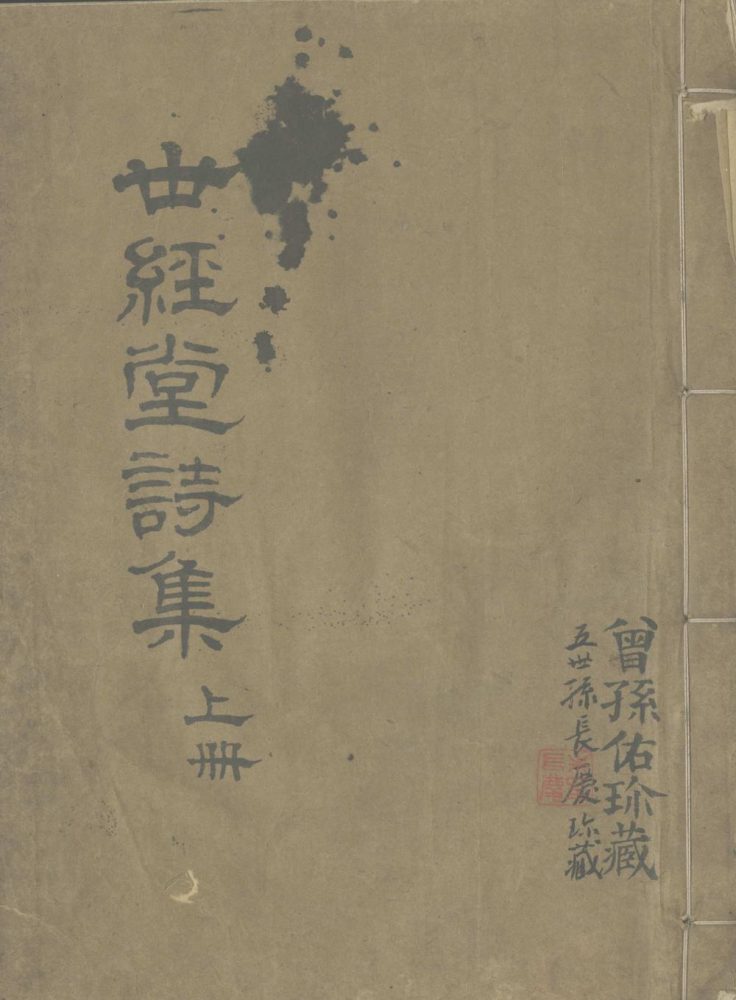 曾孫佑珎藏
五世孫長慶珎藏
世經堂詩集
上冊